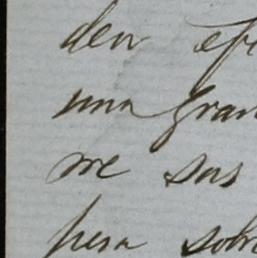 den efe
una gran
me sus
pesa sobre